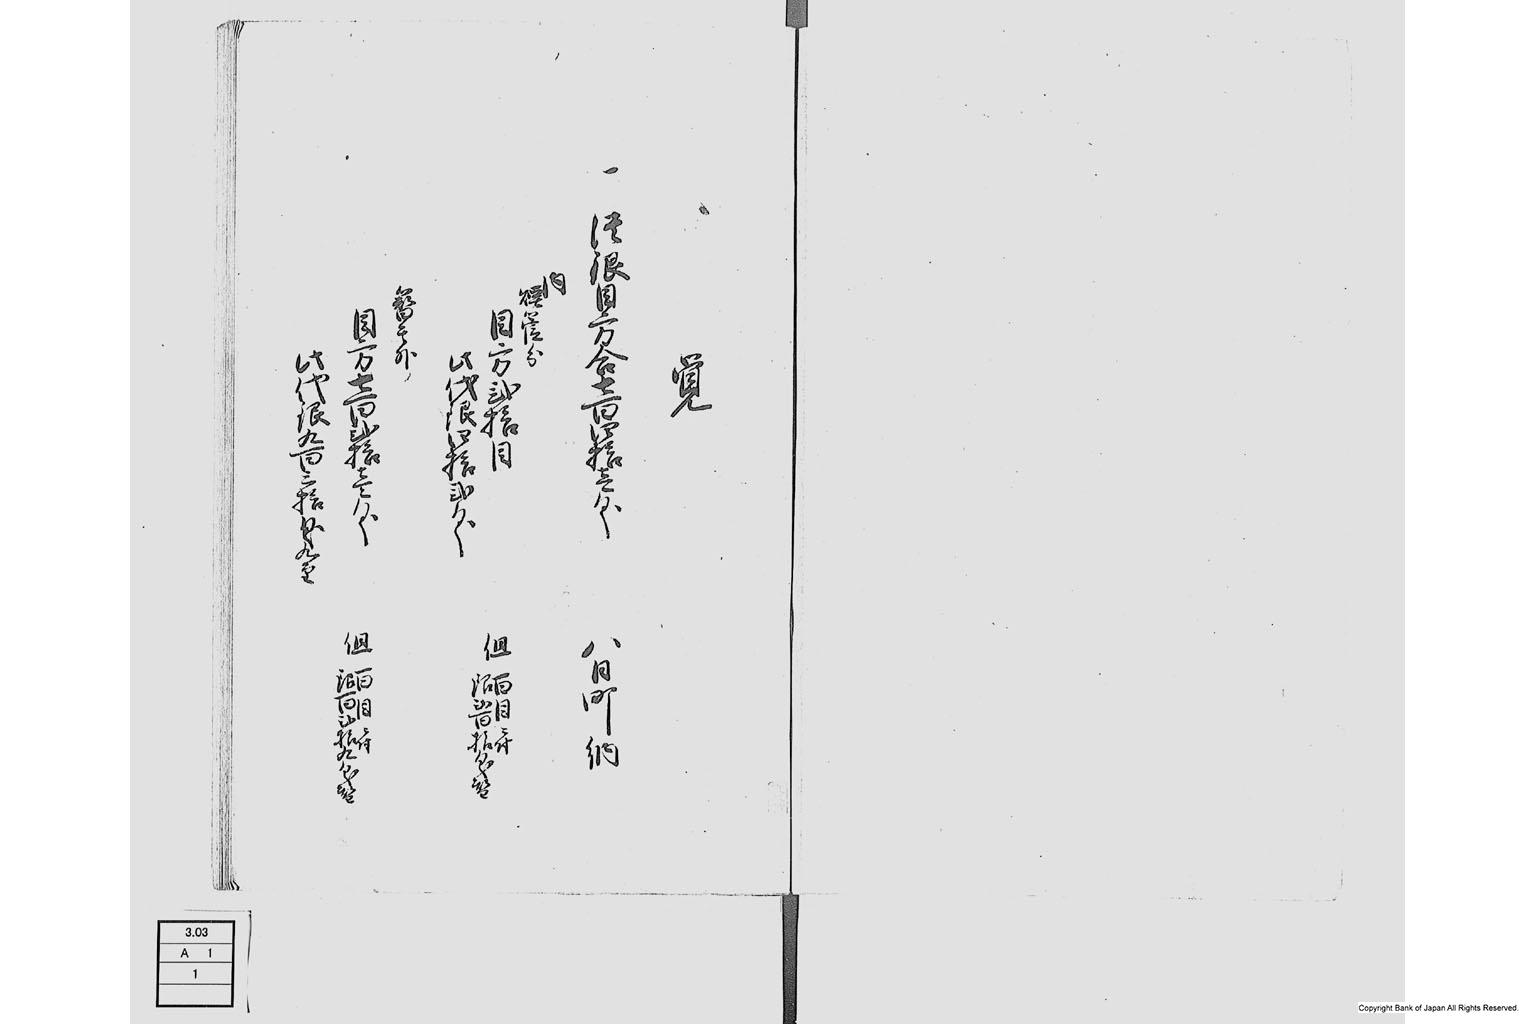 覚
一 潰銀目方合七百四拾壱匁 八日町納
内
煙管分
目方弐拾目 但 百目ニ付
銀弐百拾匁替
此代銀四拾弐匁
簪其外
目方七百弐拾壱匁 但 百目ニ付
銀百弐拾九匁替
此代銀九百三拾匁九厘
3.03
A 1
1
Copyright Bank of Japan All Rights Reserved.